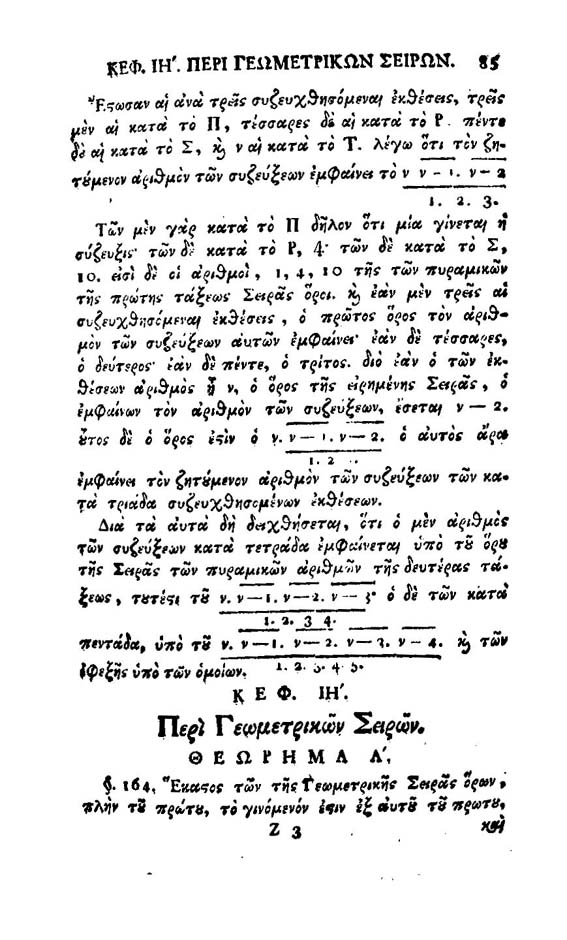 ΚΕΦ. ΙΗ'. ΠΕΡΙ ΓΕΩΜΕΤΡΙΚΩΝ ΣΕΙΡΩΝ. 85
Ἔστωσαν αἱ ἀνὰ τρεῖς συζευχθησόμεναι ἐκθέσεις, τρεῖς
μὲν αἱ κατὰ τὸ Π, τέσσαρες δὲ αἱ κατὰ τὸ Ρ. πέντε
δὲ αἱ κατὰ τὸ Σ, ϗ ν αἱ κατὰ τὸ Τ. λέγω ὅτι τὸν ζη-
τούμενον ἀριθμὸν τῶν συζεύξεων ἐμφαίνει τὸ ν ν - 1. ν - 2
1. 2. 3.
Τῶν μὲν γὰρ κατὰ τὸ Π δῆλον ὅτι μία γίνεται ἡ
σύζευξις· τῶν δὲ κατὰ τὸ Ρ, 4· τῶν δὲ κατὰ τὸ Σ,
10. εἰσὶ δὲ οἱ ἀριθμοὶ, 1, 4, 10 τῆς τῶν πυραμικῶν
τῆς πρώτης τάξεως Σειρᾶς ὅροι. ϗ ἐὰν μὲν τρεῖς αἱ
συζευχθησόμεναι ἐκθέσεις, ὁ πρῶτος ὅρος τὸν ἀριθ-
μὸν τῶν συζεύξεων αὐτῶν ἐμφαίνει· ἐὰν δὲ τέσσαρες,
ὁ δεύτερος· ἐὰν δὲ πέντε, ὁ τρίτος. διὸ ἐὰν ὁ τῶν ἐκ-
θέσεων ἀριθμὸς ᾖ ν, ὁ ὅρος τῆς εἰρημένης Σειρᾶς, ὁ
ἐμφαίνων τὸν ἀριθμὸν τῶν συζεύξεων, ἔσεται ν — 2.
οὗτος δὲ ὁ ὅρος ἐστὶν ὁ ν. ν — 1. ν — 2. ὁ αὐτὸς ἄρα
1. 2
ἐμφαίνει τὸν ζητούμενον ἀριθμὸν τῶν συζεύξεων τῶν κα-
τὰ τριάδα συζευχθησομένων ἐκθέσεων.
Διὰ τὰ αὐτὰ δὴ δειχθήσεται, ὅτι ὁ μὲν ἀριθμὸς
τῶν συζεύξεων κατὰ τετράδα ἐμφαίνεται ὑπὸ τοῦ ὅρου
τῆς Σειρᾶς τῶν πυραμικῶν ἀριθμῶν τῆς δευτέρας τά-
ξεως, τουτέστι τοῦ ν. ν — 1. ν — 2. ν — 3· ὁ δὲ τῶν κατὰ
1. 2. 3 4.
πεντάδα, ὑπὸ τοῦ ν. ν — 1. ν — 2. ν — 3. ν — 4. ϗ τῶν
ἐφεξῆς ὑπὸ τῶν ὁμοίων. 1. 2. 3. 4 5.
ΚΕΦ. ΙΗ'.
Περὶ Γεωμετρικῶν Σειρῶν.
ΘΕΩΡΗΜΑ Α'.
§. 164. Ἕκαστος τῶν τῆς Γεωμετρικῆς Σειρᾶς ὅρων,
πλὴν τοῦ πρώτου, τὸ γινόμενόν ἐστιν ἐξ αὐτοῦ τοῦ πρώτου,
Ζ 3 καὶ